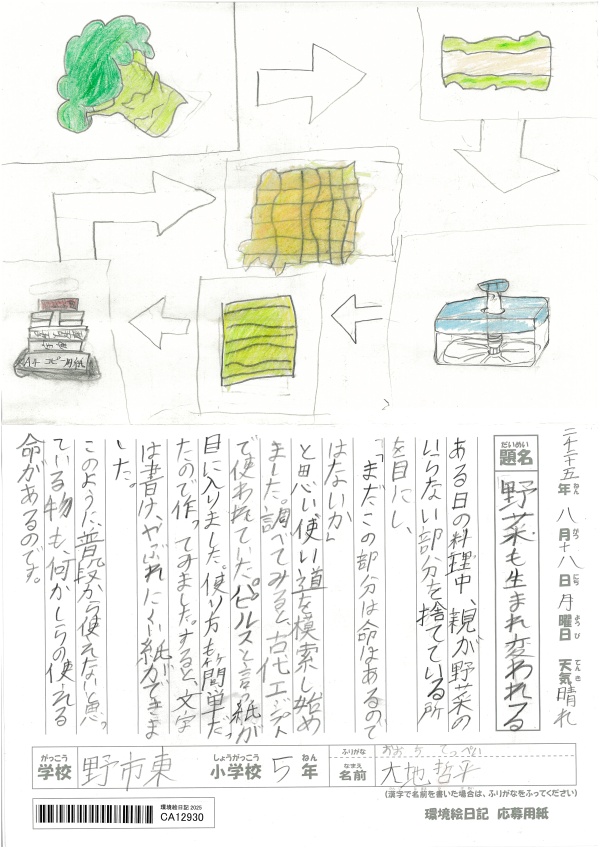 コピー用紙
二千二十五年 八月十八日 月曜日 天気 晴れ
ねん がつ にち よう び てん き
だいめい
題名
野菜も生まれ変われる
ある日の料理中、親が野菜の
いらない部分を捨てている所
を目にし、
「まだこの部分は命はあるので
はないか」
と思い、使い道を模索し始め
ました。調べてみると、古代エジプト
で使われていた、パピルスと言う紙が
目に入りました。使り方も簡単だっ
たので作ってみました。すると、文字
は書け、やぶれにくい紙ができま
した。
このように、普段から使えないと思っ
ている物も、何かしらの使える
命があるのです。
がっこう
学校
野市東
しょうがっこう
小学校
5
ねん
年
ふりがな
おおち てっぺい
なまえ
名前
大地哲平
(漢字で名前を書いた場合は、ふりがなをふってください)
環境絵日記 2025
CA12930
環境絵日記 応募用紙